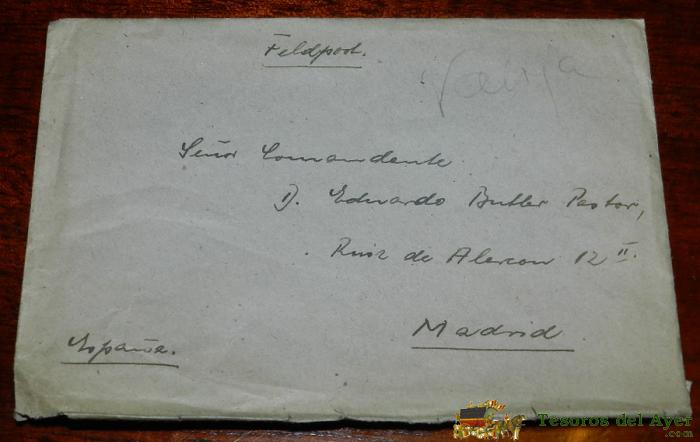 Feldpost.
Señor Comandante
D. Eduardo Butler Pastor,
Ruiz de Alarcon 12 II.
Madrid
España.
Tesoros del Ayer
.com